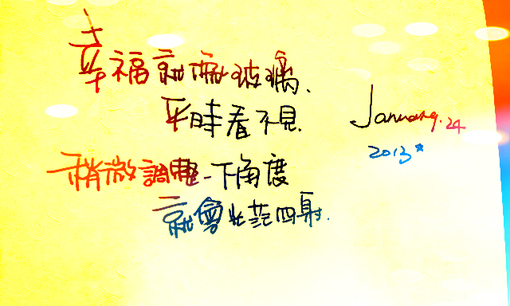 幸福就像玻璃.
平時看不見.
稍微調整一下角度
就會光芒四射.
January. 24
2013*